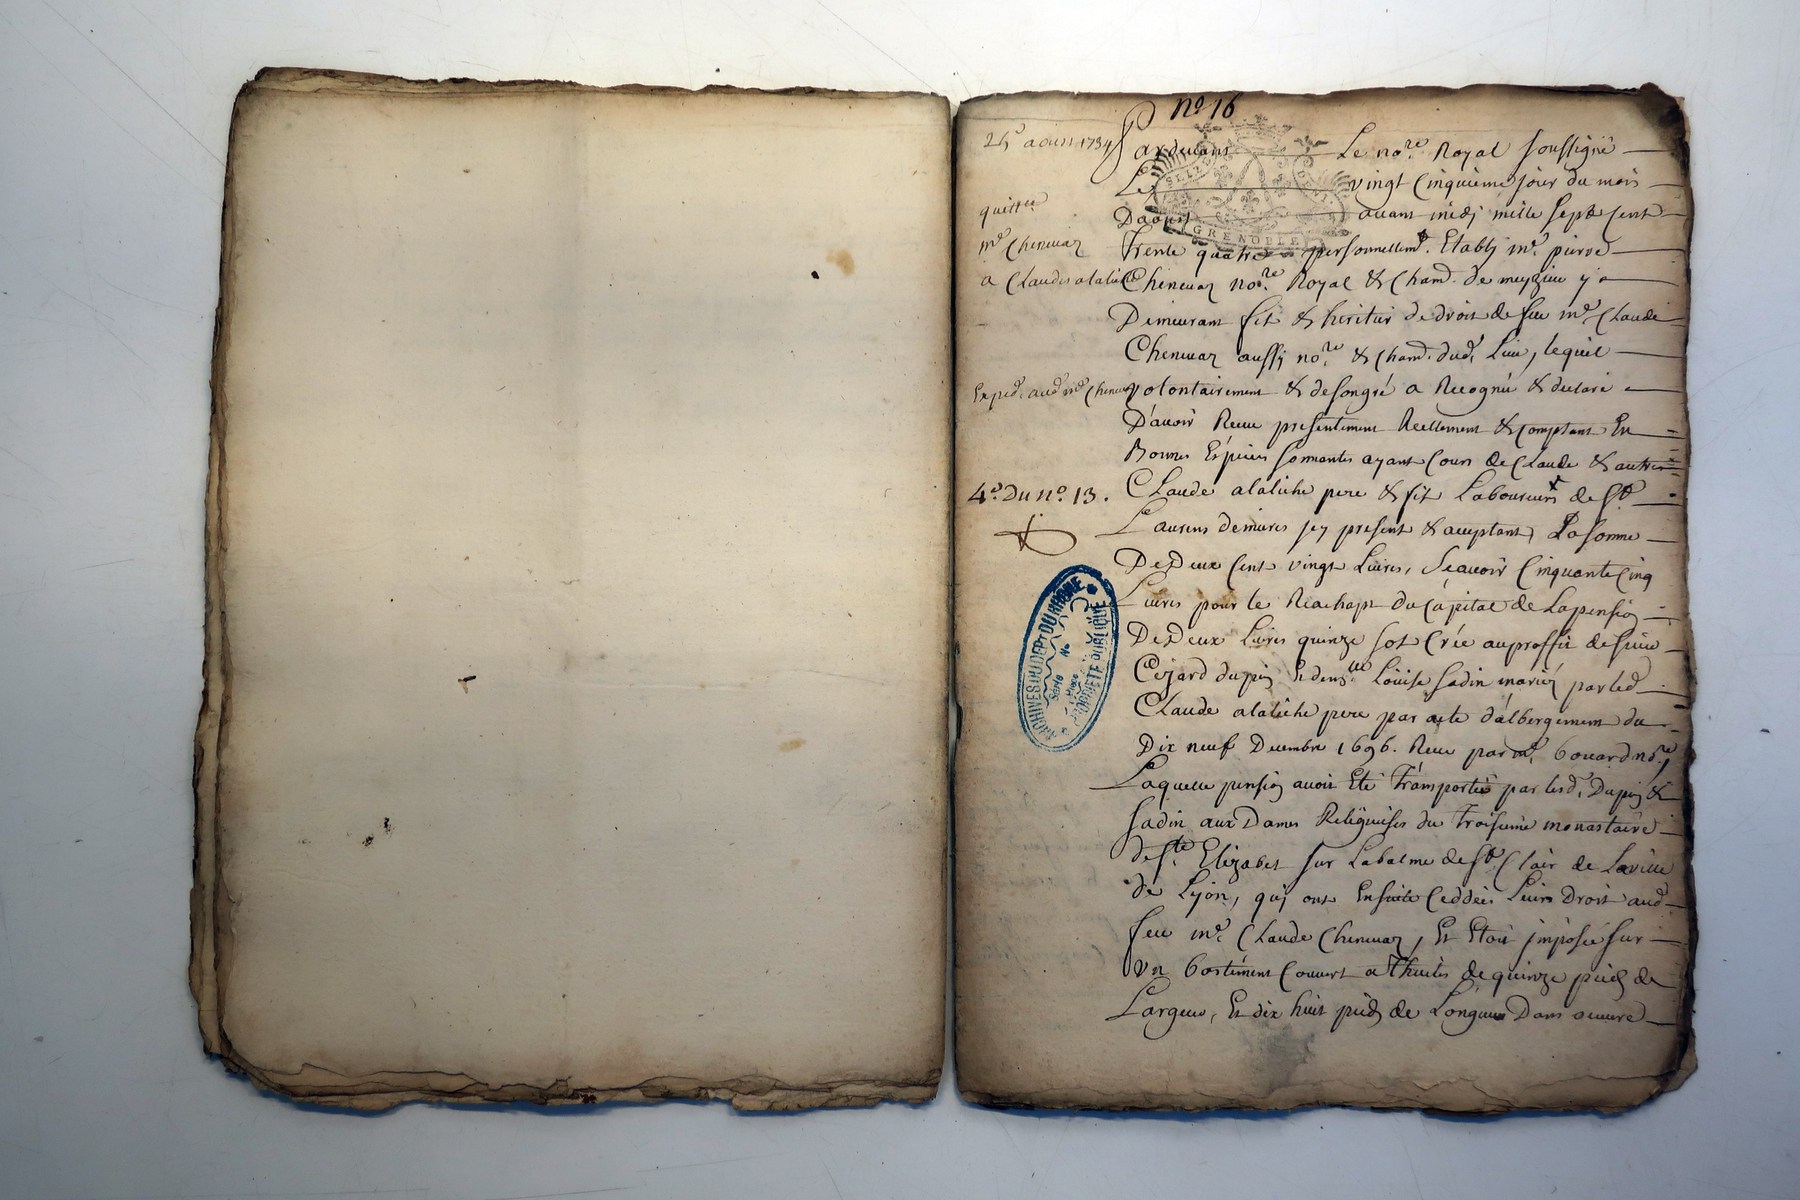 no 16
25e aoust 1734
Pardevant Le nore Royal soussigné
Le vingt Cinquieme jour du mois
Daoust avant midj mille sept cent
trente quatre personnellemt. Etablj me. pierre
quittce
me Chenevaz
a Claudes alaliche
Chenevaz nore. Royal & Cham. de meyzieu y
Demeurant fils & heritier de droit de feu me. Claude
Chenevaz aussy nore. & Cham. dud. Lieu, lequel
Exped. aud me Chenevaz
volontairement & de son gré a Recognu & declaré
D'avoir Receu presentement Reellement & comptant En
Bonnes Espèces sonnantes ayant Cours de Claude & autre
4e. Du no. 13.
Claude alaliche pere & fils Laboureurs de St.
Laurens demures jcy present & acceptant, La somme
De Deux Cent vingt Livres, Sçavoir Cinquante Cinq
Livres pour le Reachapt du Capital de La pension
De Deux Livres quinze sols Crée au proffit de sieur
Cezard dupin Et demlle Louise Sadin mariéz par led
Claude alaliche pere par acte d'albergement du
Dix neuf Decembre 1696. Receu par me. Bouard nore,
Laquelle pension avoit Eté Transportée par lesd. Dupin &
Sadin aux Dames Religieuses du Troisieme monastaire
de Ste. Elizabet sur La balme de St. Clair de La ville
de Lyon, quj ont Ensuite Ceddées Leurs Droit aud
feu me. Claude Chenevaz, Et Etoit jmposée sur
Vn Bastiment Couvert a Thuiles de quinze pieds de
Largeur, Et dix huit pieds de Longueur Dans oeuvre
GRENOBLE
ARCHIVES DU DEPT DU RHÔNE
Série
No
Pièce
PROPRIÉTÉ PUBLIQUE